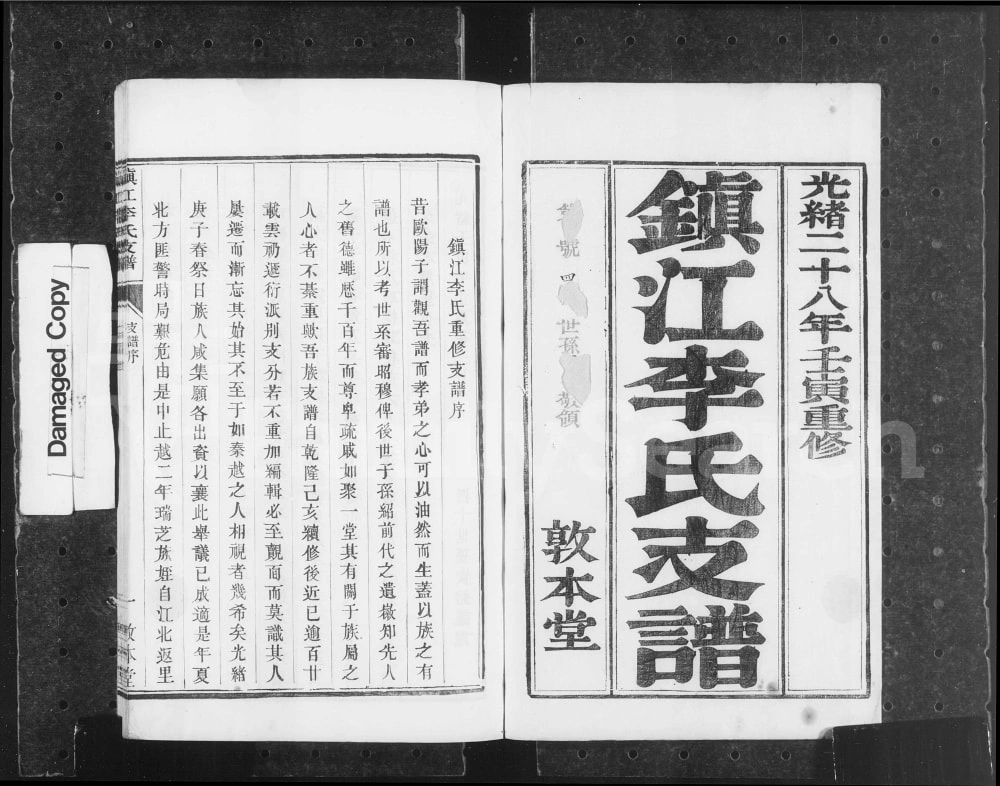 光緒二十八年壬寅重修
鎮江李氏支譜
號 四 世孫 領
敦本堂
鎮江李氏重修支譜序
昔歐陽子謂觀吾譜而孝弟之心可以油然而生蓋以族之有
譜也所以考世系審昭穆俾後世子孫紹前代之遺徽知先人
之舊德雖歷千百年而尊卑疏戚如聚一堂其有關于族屬之
人心者不綦重歟吾族支譜自乾隆己亥續修後近已逾百廿
載雲礽遞衍派別支分若不重加編輯必至覿面而莫識其人
屢遷而漸忘其始其不至于如秦越之人相視者幾希矣光緒
庚子春祭日族人咸集願各出資以襄此舉議已成適是年夏
北方匪警時局艱危由是中止越二年瑞芝族姪自江北返里
鎮江李氏支譜
支譜序
一
敦本堂
Damaged Copy